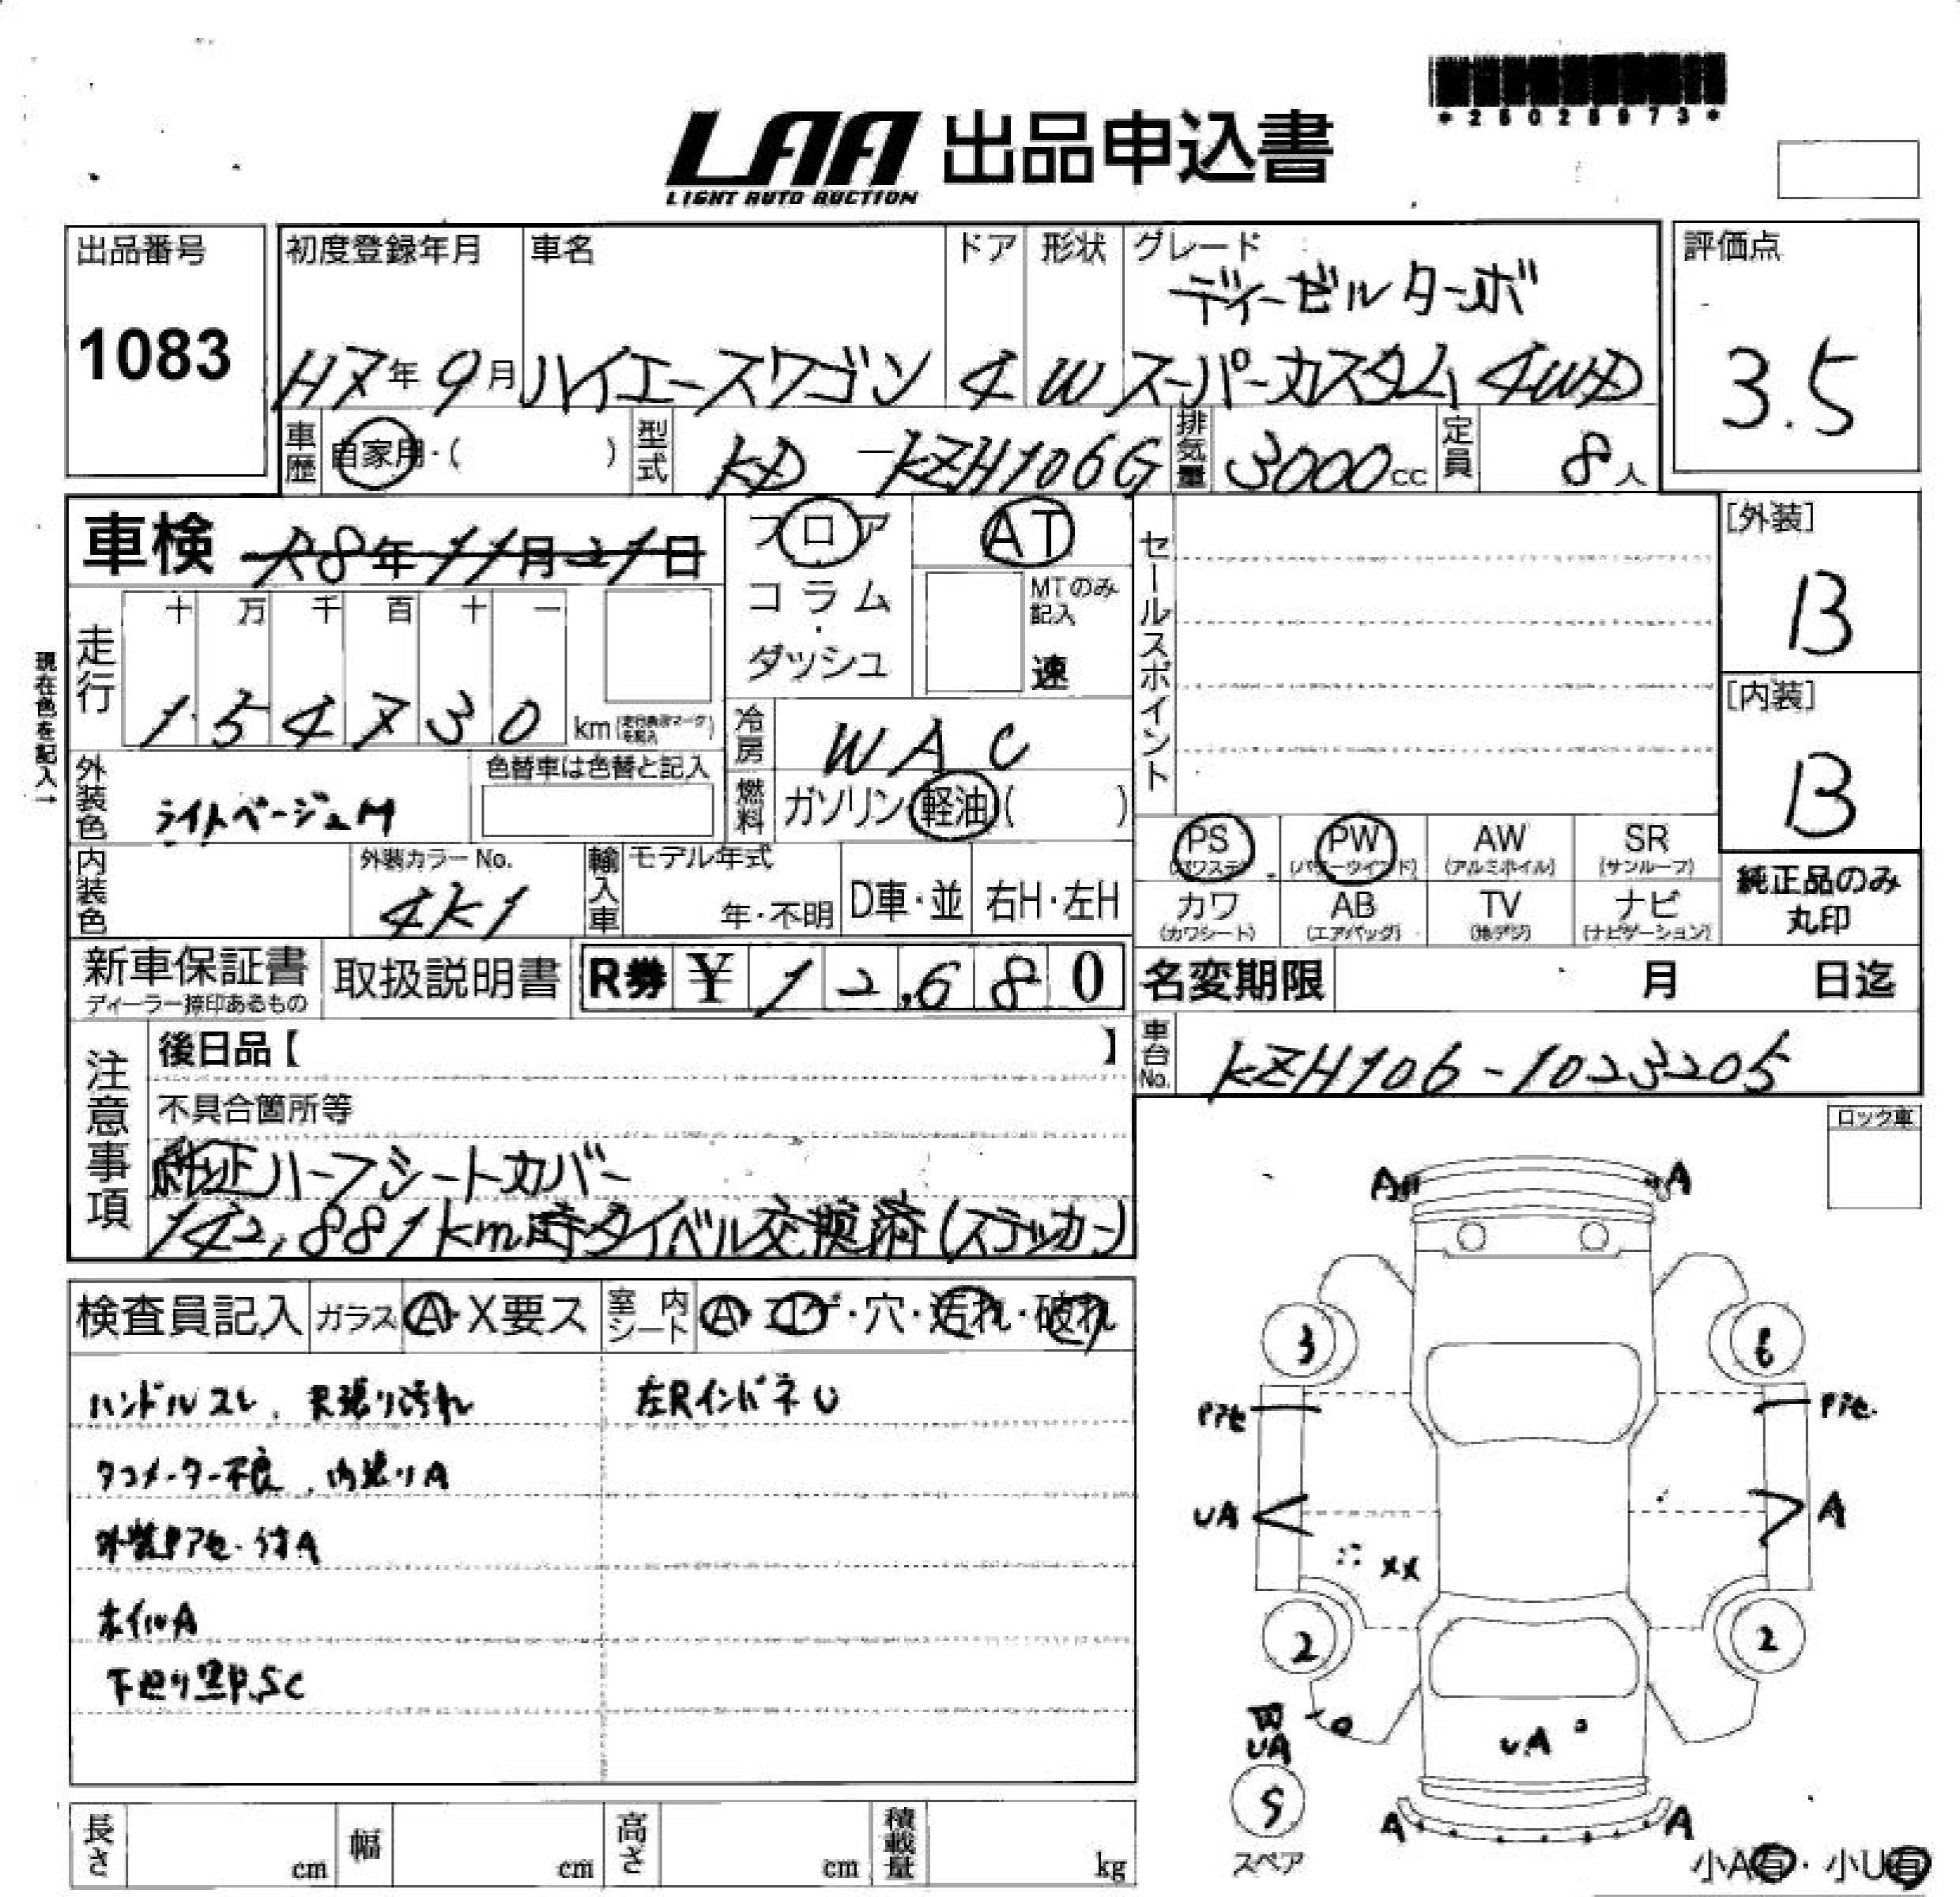 *26028973*
LAA 出品申込書
LIGHT AUTO AUCTION
出品番号 初度登録年月 車名 ドア 形状 グレード 評価点
ディーゼルターボ
1083 H7年9月 ハイエースワゴン 4 W スーパーカスタム 4WD 3.5
車歴 自家用・( ) 型式 KD-KZH106G 排気量 3000cc 定員 8人
車検 R8年11月21日
フロア・コラム・ダッシュ
AT
MTのみ記入
速
セールスポイント
[外装]
B
[内装]
B
現在色を記入→
走行 十 万 千 百 十 一
1 5 4 7 3 0 km (走行表示マークを記入)
冷房 W A C
外装色 ライトベージュM 色替車は色替と記入
燃料 ガソリン 軽油 ( )
PS (パワステ) PW (パワーウインド) AW (アルミホイル) SR (サンルーフ)
カワ (カワシート) AB (エアバッグ) TV (地デジ) ナビ (ナビゲーション)
純正品のみ
丸印
内装色 外装カラーNo. 4K1 輸入車 モデル年式 年・不明 D車・並 右H・左H
新車保証書 ディーラー捺印あるもの 取扱説明書 R券 ¥ 1 2,6 8 0
名変期限 月 日迄
車台No. KZH106-1023205
注意事項
後日品【 】
不具合箇所等
純正ハーフシートカバー
142,881km時タイベル交換済(ステッカー)
ロック車
検査員記入 ガラス A・X要ス 室内シート A・コゲ・穴・汚れ・破れ
ハンドルスレ、天張り汚れ 左Rインドネ U
タコメーター不良、内張りA
外装Pアセ・付A
ホイルA
下廻り黒P.SC
A A
3 6
Pアセ Pアセ
UA A
XX
2 2
UA
UA
5
スペア
A A
小A有・小U有
長さ cm 幅 cm 高さ cm 積載量 kg